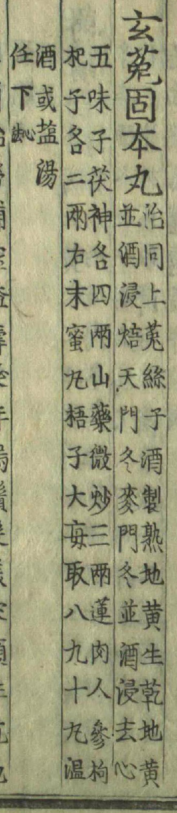 玄菟固本丸
治同上菟絲子酒製熟地黄生乾地黄
並酒浸焙天門冬麥門冬並酒浸去心
五味子茯神各四兩山藥微炒三兩蓮肉人參枸
杞子各二兩右末蜜丸梧子大每取八九十丸温
酒或塩湯
任下